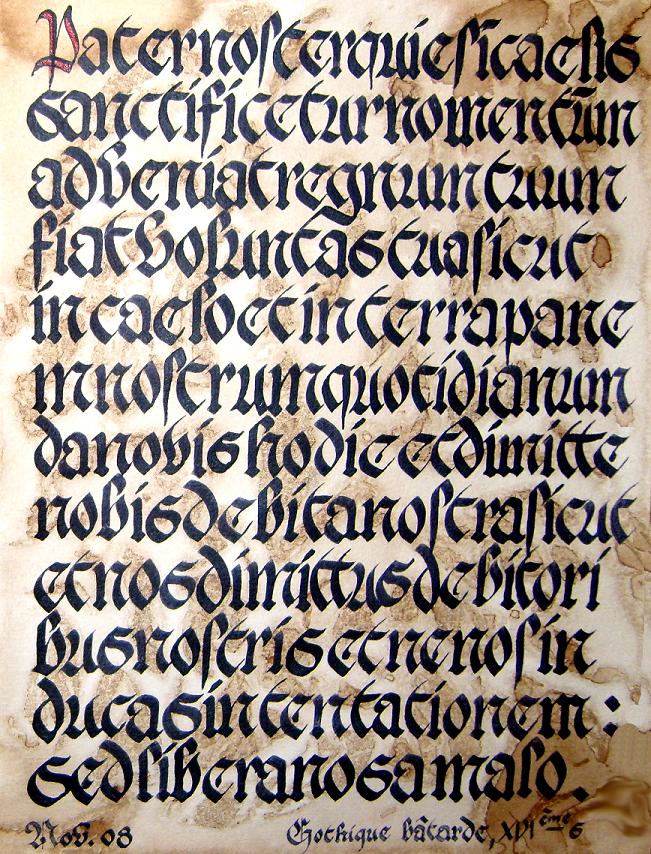 Paternosterquiesīcaelis
sanctificeturnomentūm
adveniatregnumtuum
fiatvoluntastuasicut
incaeloetinterrapane
mnostrumquotidianum
danobishodieetdimitte
nobisdebitanostrasicut
etnosdimittusdebitori
busnostrisetnenosin
ducasintentationem:
sedliberanosamalo.
Nov. 08 Gothique bâtarde, XVIème s